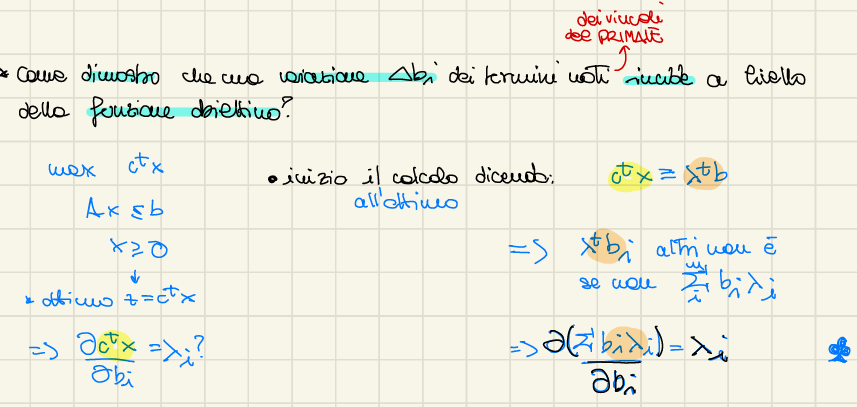 dei vincoli
del PRIMALE
* Come dimostro che una variazione Δbᵢ dei termini noti incide a livello
della funzione obiettivo?
max cᵗx
Ax ≤ b
x ≥ 0
↓
* ottimo z = cᵗx
=> ∂cᵗx / ∂bᵢ = λᵢ?
• inizio il calcolo dicendo: cᵗx ≡ λᵗb
all'ottimo
=> λᵗbᵢ altri non è
se non Σᵢᵐ bᵢλᵢ
=> ∂(Σ bᵢλᵢ) / ∂bᵢ = λᵢ ♣